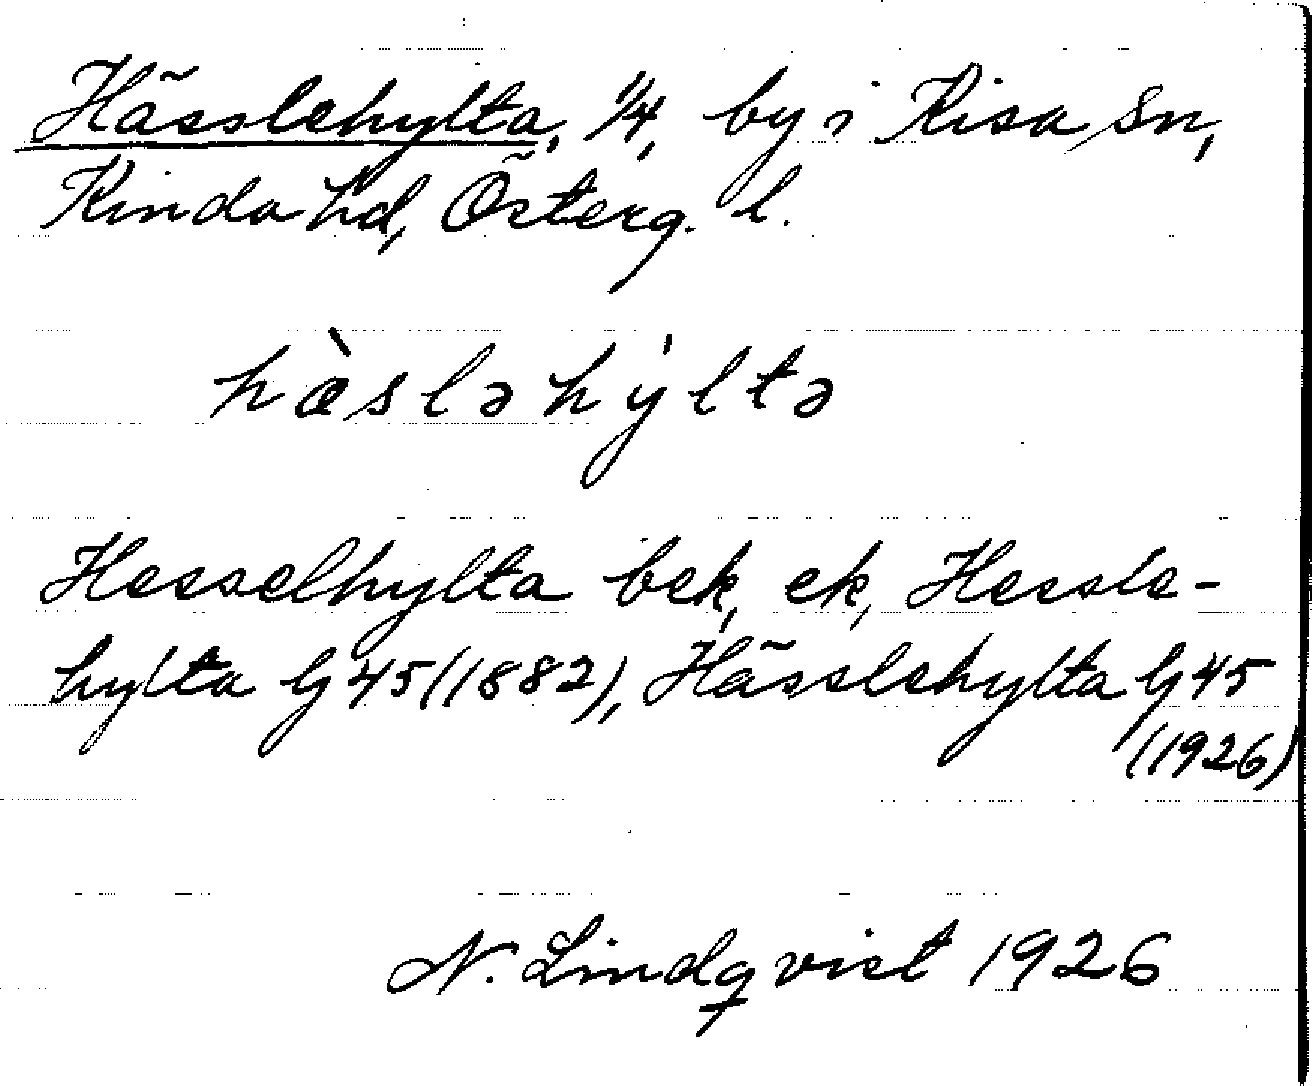 Hässlehylta, 1/4, by i Kisa sn,
Kinda hd, Österg. l.
hæ̀sləhy̍ltə
Hesselhylta bek, ek, Hessle-
hylta Gj 45 (1882), Hässlehylta Gj 45
(1926)
N. Lindqvist 1926